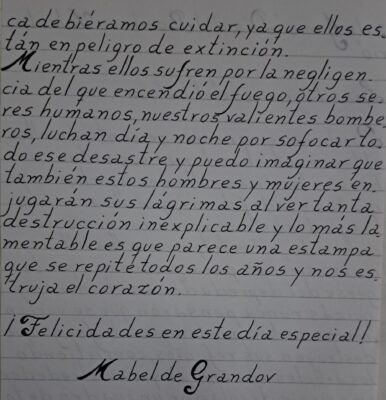 ca debiéramos cuidar, ya que ellos es-
tán en peligro de extinción.
Mientras ellos sufren por la negligen-
cia del que encendió el fuego, otros se-
res humanos, nuestros valientes bombe-
ros, luchan día y noche por sofocar to-
do ese desastre y puedo imaginar que
también estos hombres y mujeres en-
jugarán sus lágrimas al ver tanta
destrucción inexplicable y lo más la-
mentable es que parece una estampa
que se repite todos los años y nos es-
truja el corazón.
¡Felicidades en este día especial!
Mabel de Grandov